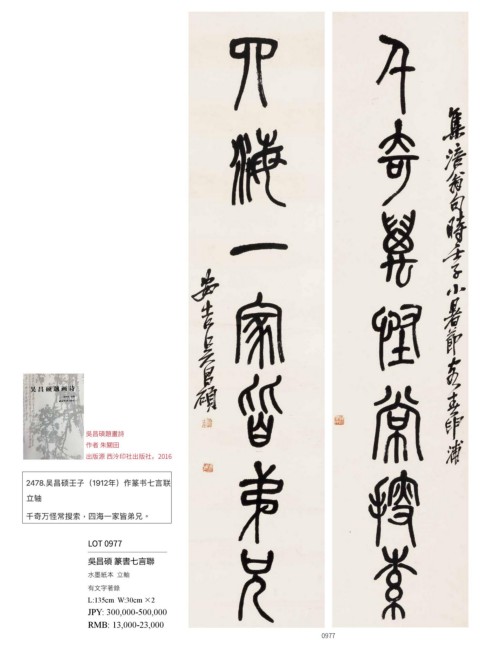 千奇萬怪常搜索
集涪翁句時壬子小暑節客春申浦
四海一家皆弟兄
安吉吳昌碩
吳昌碩題畫詩
吳昌碩題畫詩
作者 朱關田
出版源 西泠印社出版社，2016
2478.吴昌硕壬子（1912年）作篆书七言联
立轴
千奇万怪常搜索，四海一家皆弟兄。
LOT 0977
吳昌碩 篆書七言聯
水墨紙本 立軸
有文字著錄
L:135cm W:30cm ×2
JPY: 300,000-500,000
RMB: 13,000-23,000
0977